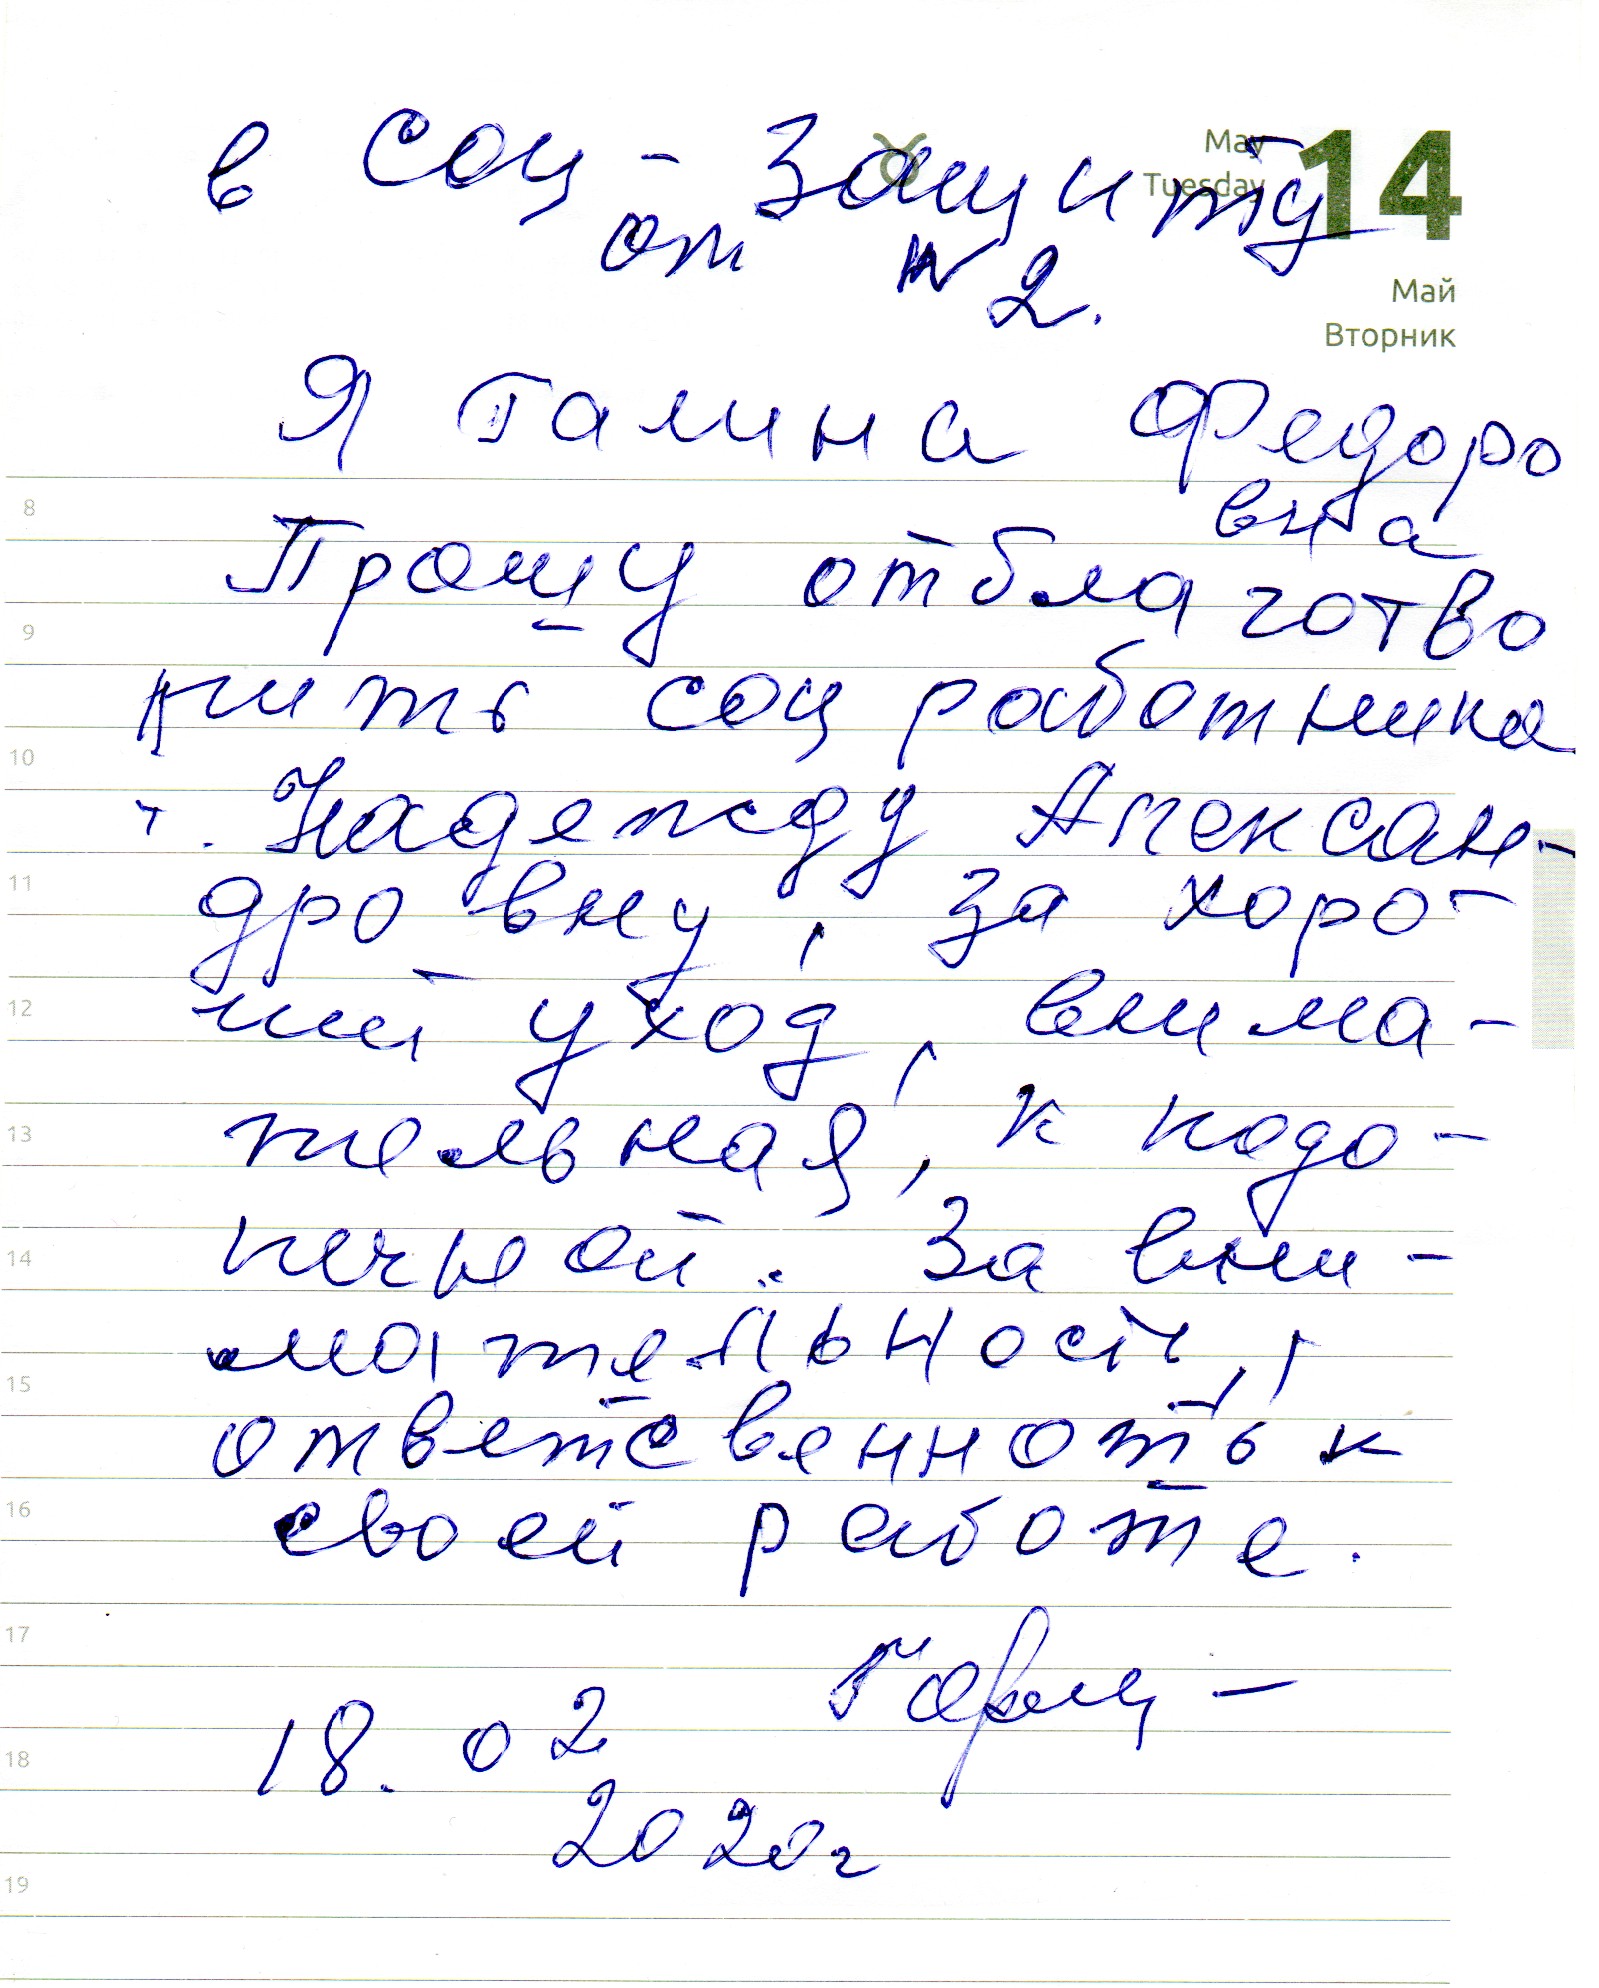 May
Tuesday
14
Май
Вторник
в Соц - Защиту
от № 2.
Я Галина Федоро
вна
Прошу отблаготво
рить соц работника
. Надежду Алексан-
дровну, за хоро-
ший уход, внима-
тельная, к подо-
печной. За вни-
мательность,
ответственность к
своей работе.
18.02
2020г
8
9
10
11
12
13
14
15
16
17
18
19